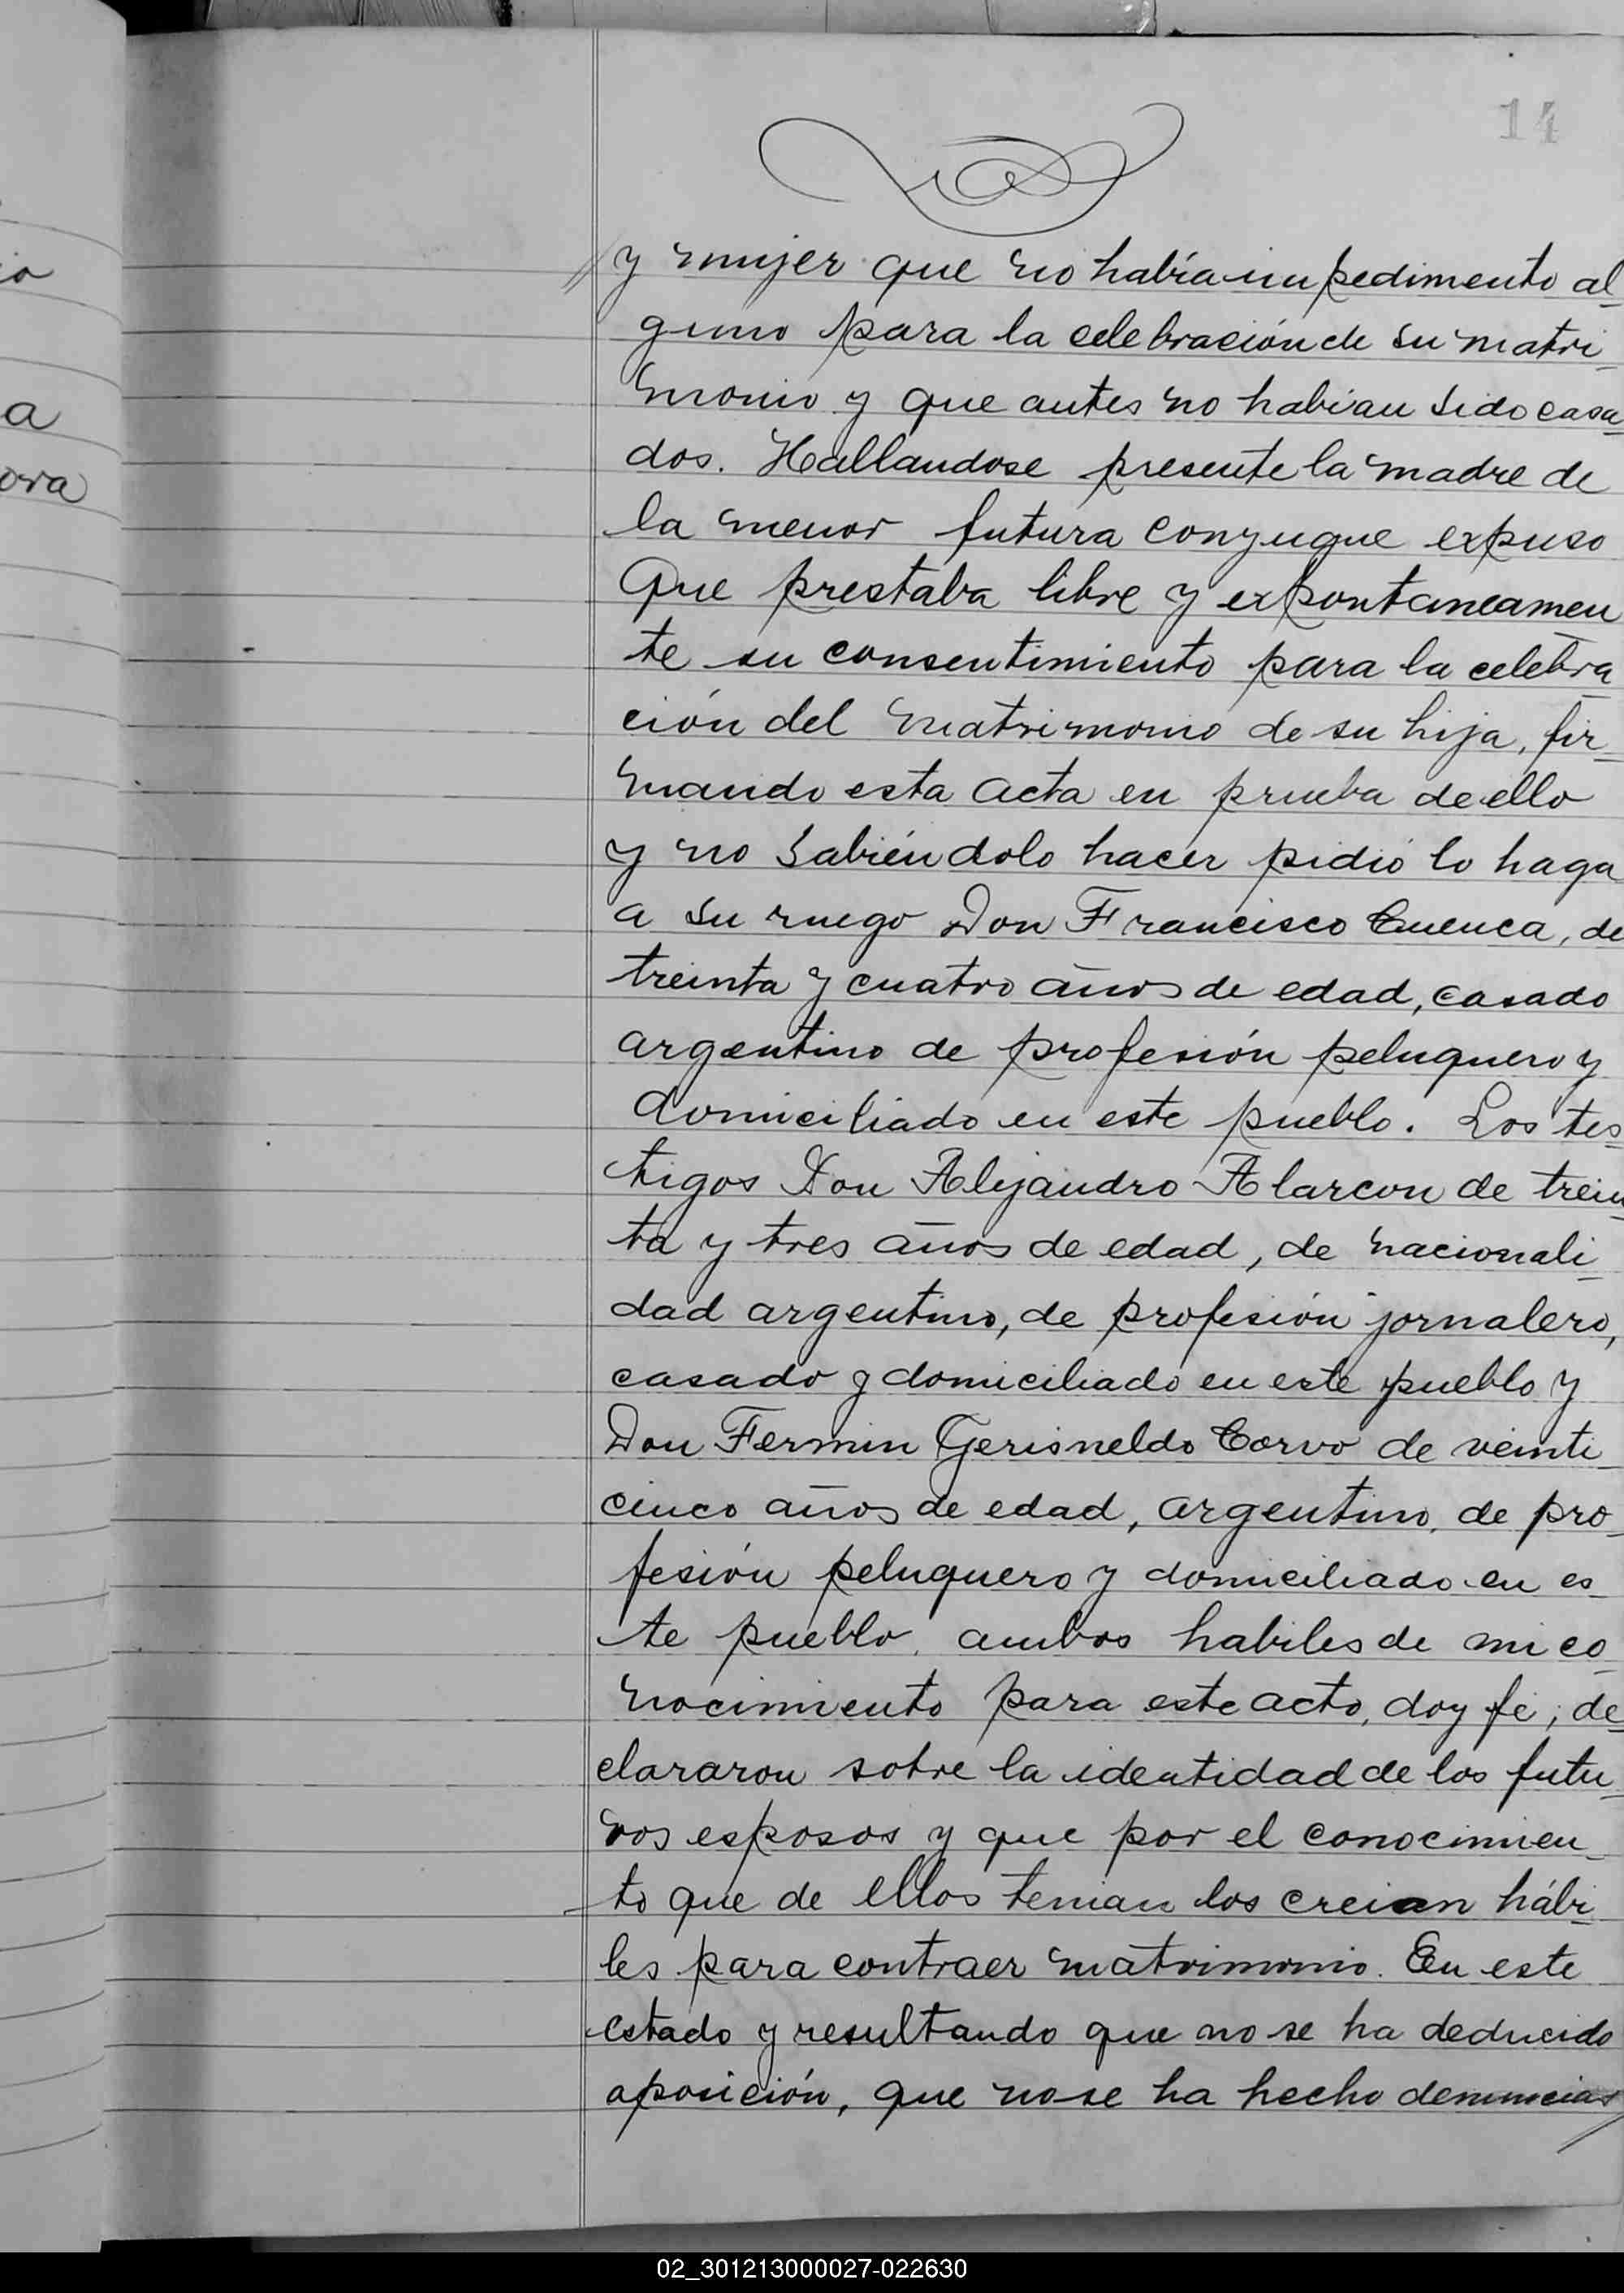 14
io
a
ora
// y mujer que no había impedimento al_
guno para la celebración de su matri_
monio y que antes no habian sido casa_
dos. Hallandose presente la madre de
la menor futura conyugue expuso
Que prestaba libre y expontaneamen_
te su consentimiento para la celebra_
ción del matrimonio de su hija, fir_
mando esta acta en prueba de ello
y no sabiéndolo hacer pidió lo haga
a su ruego Don Francisco Cuenca, de
treinta y cuatro años de edad, casado
argentino de profesión peluquero y
domiciliado en este pueblo. Los tes_
tigos Don Alejandro Alarcon de trein_
ta y tres años de edad, de nacionali_
dad argentino, de profesión jornalero,
casado y domiciliado en este pueblo y
Don Fermin Gerisneldo Corvo de veinti_
cinco años de edad, argentino, de pro_
fesión peluquero y domiciliado en es_
te pueblo, ambos habiles de mi co_
nocimiento para este acto, doy fé; de_
clararon sobre la identidad de los futu_
ros esposos y que por el conocimien_
to que de ellos tenian los creian hábi_
les para contraer matrimonio. En este
estado y resultando que no se ha deducido
oposición, que no se ha hecho denuncias/
02_301213000027-022630